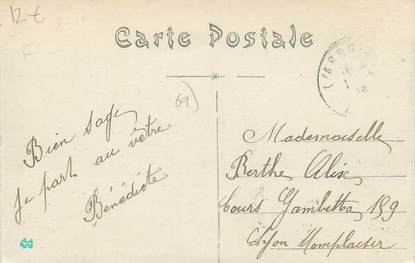 12€
Carte Postale
L'ARBR
69)
Bien sage
je part au vêtre
Bénédiote
Mademoiselle
Berthe Alix
Cours Gambetta 159
Lyon Momplaisir